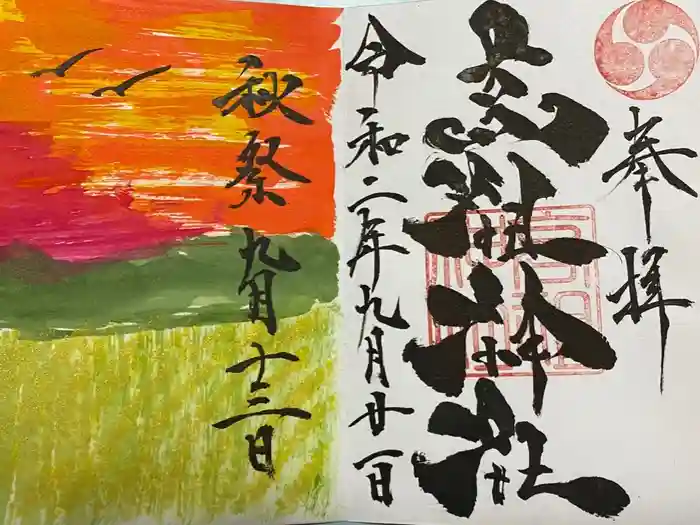 奉拝
高祖神社
令和二年九月廿一日
秋祭 九月 十三日